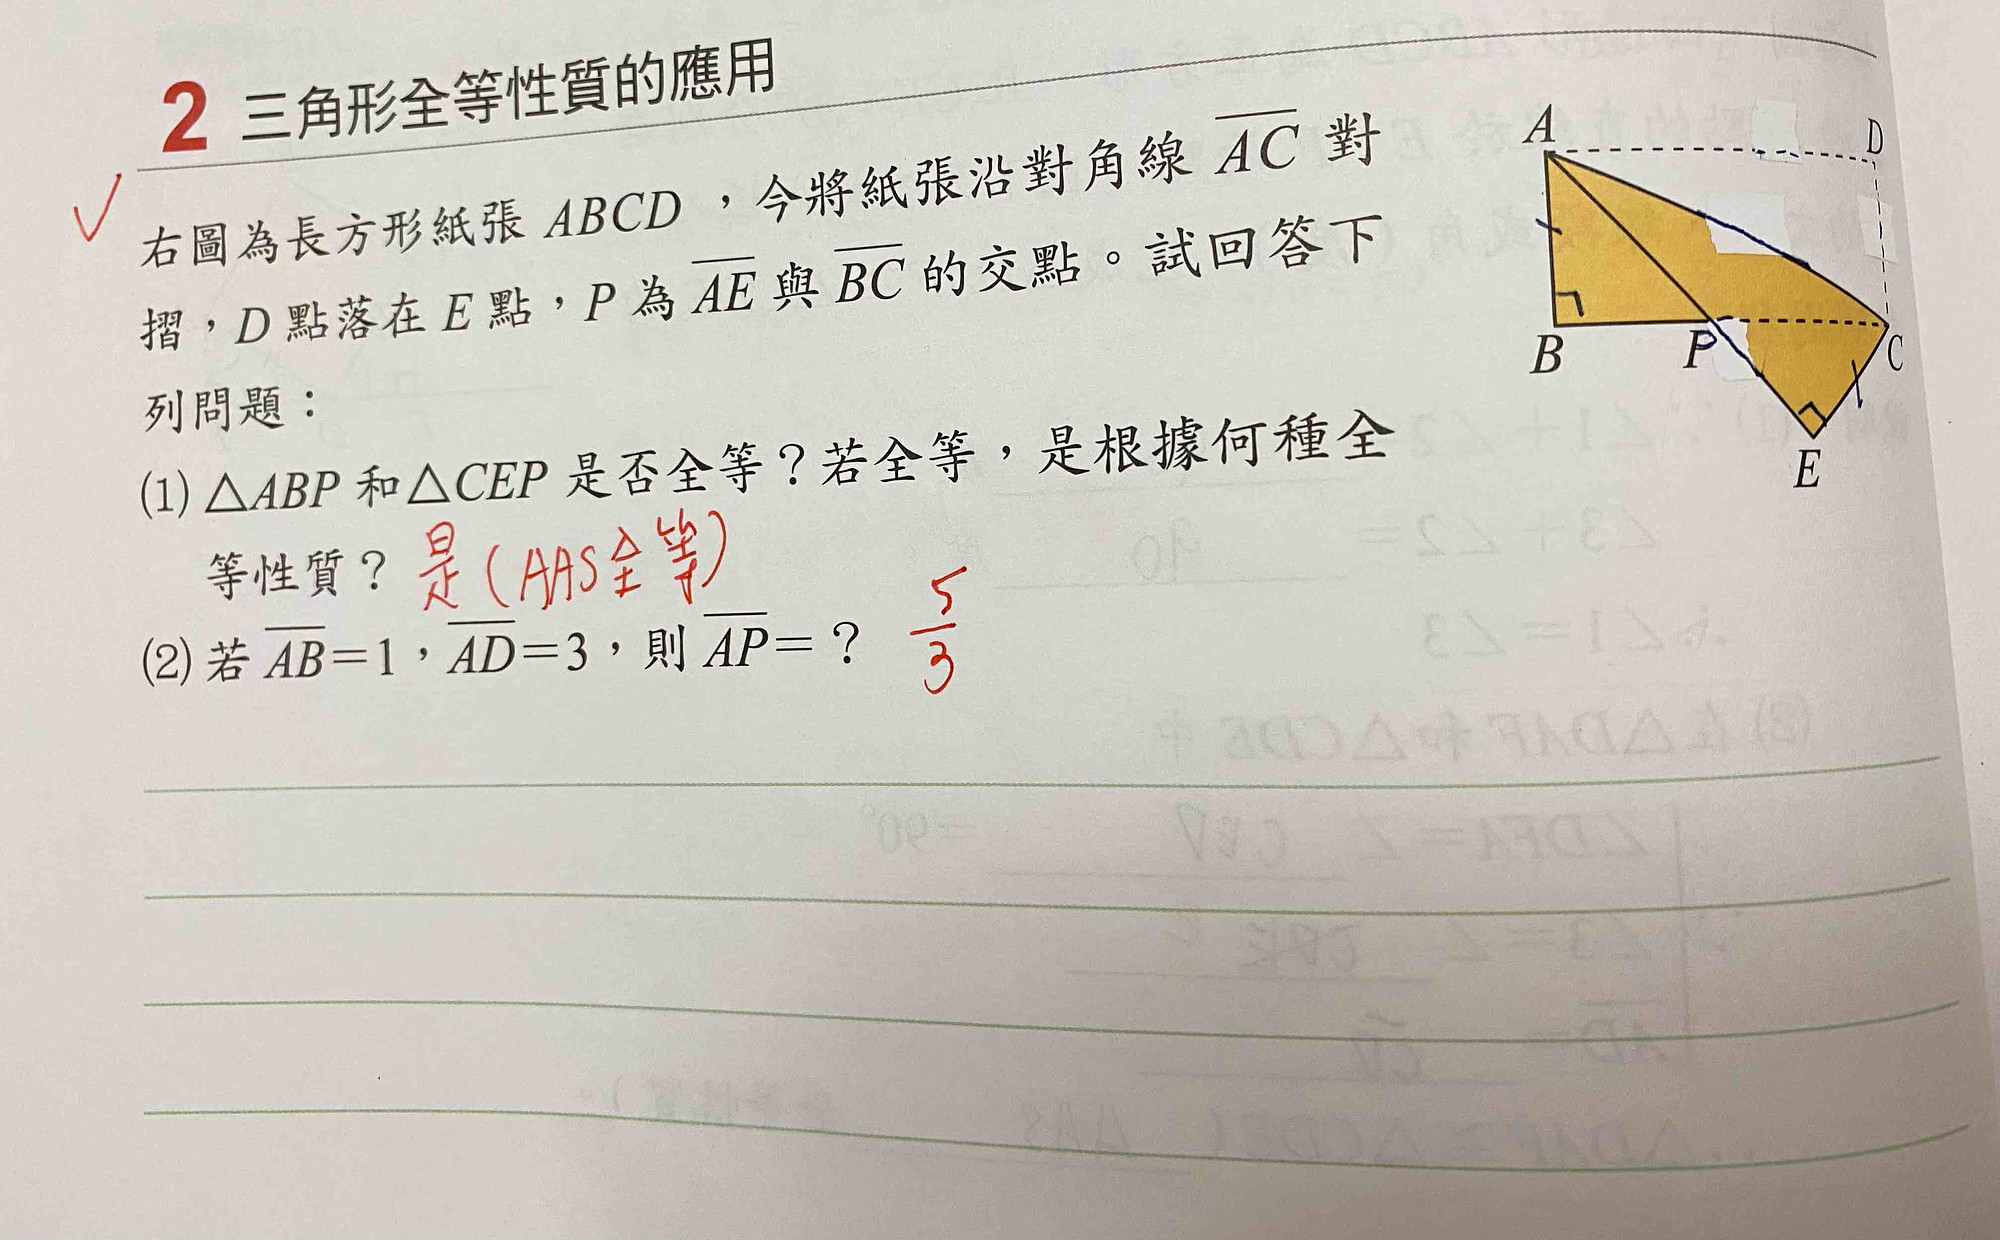 2 三角形全等性質的應用
右圖為長方形紙張 ABCD ，今將紙張沿對角線 AC 對
摺，D 點落在 E 點，P 為 AE 與 BC 的交點。試回答下
列問題：
(1) △ABP 和△CEP 是否全等？若全等，是根據何種全
等性質？ 是（AAS全等）
(2) 若 AB=1，AD=3，則 AP=？ 5/3
A
D
B
P
C
E